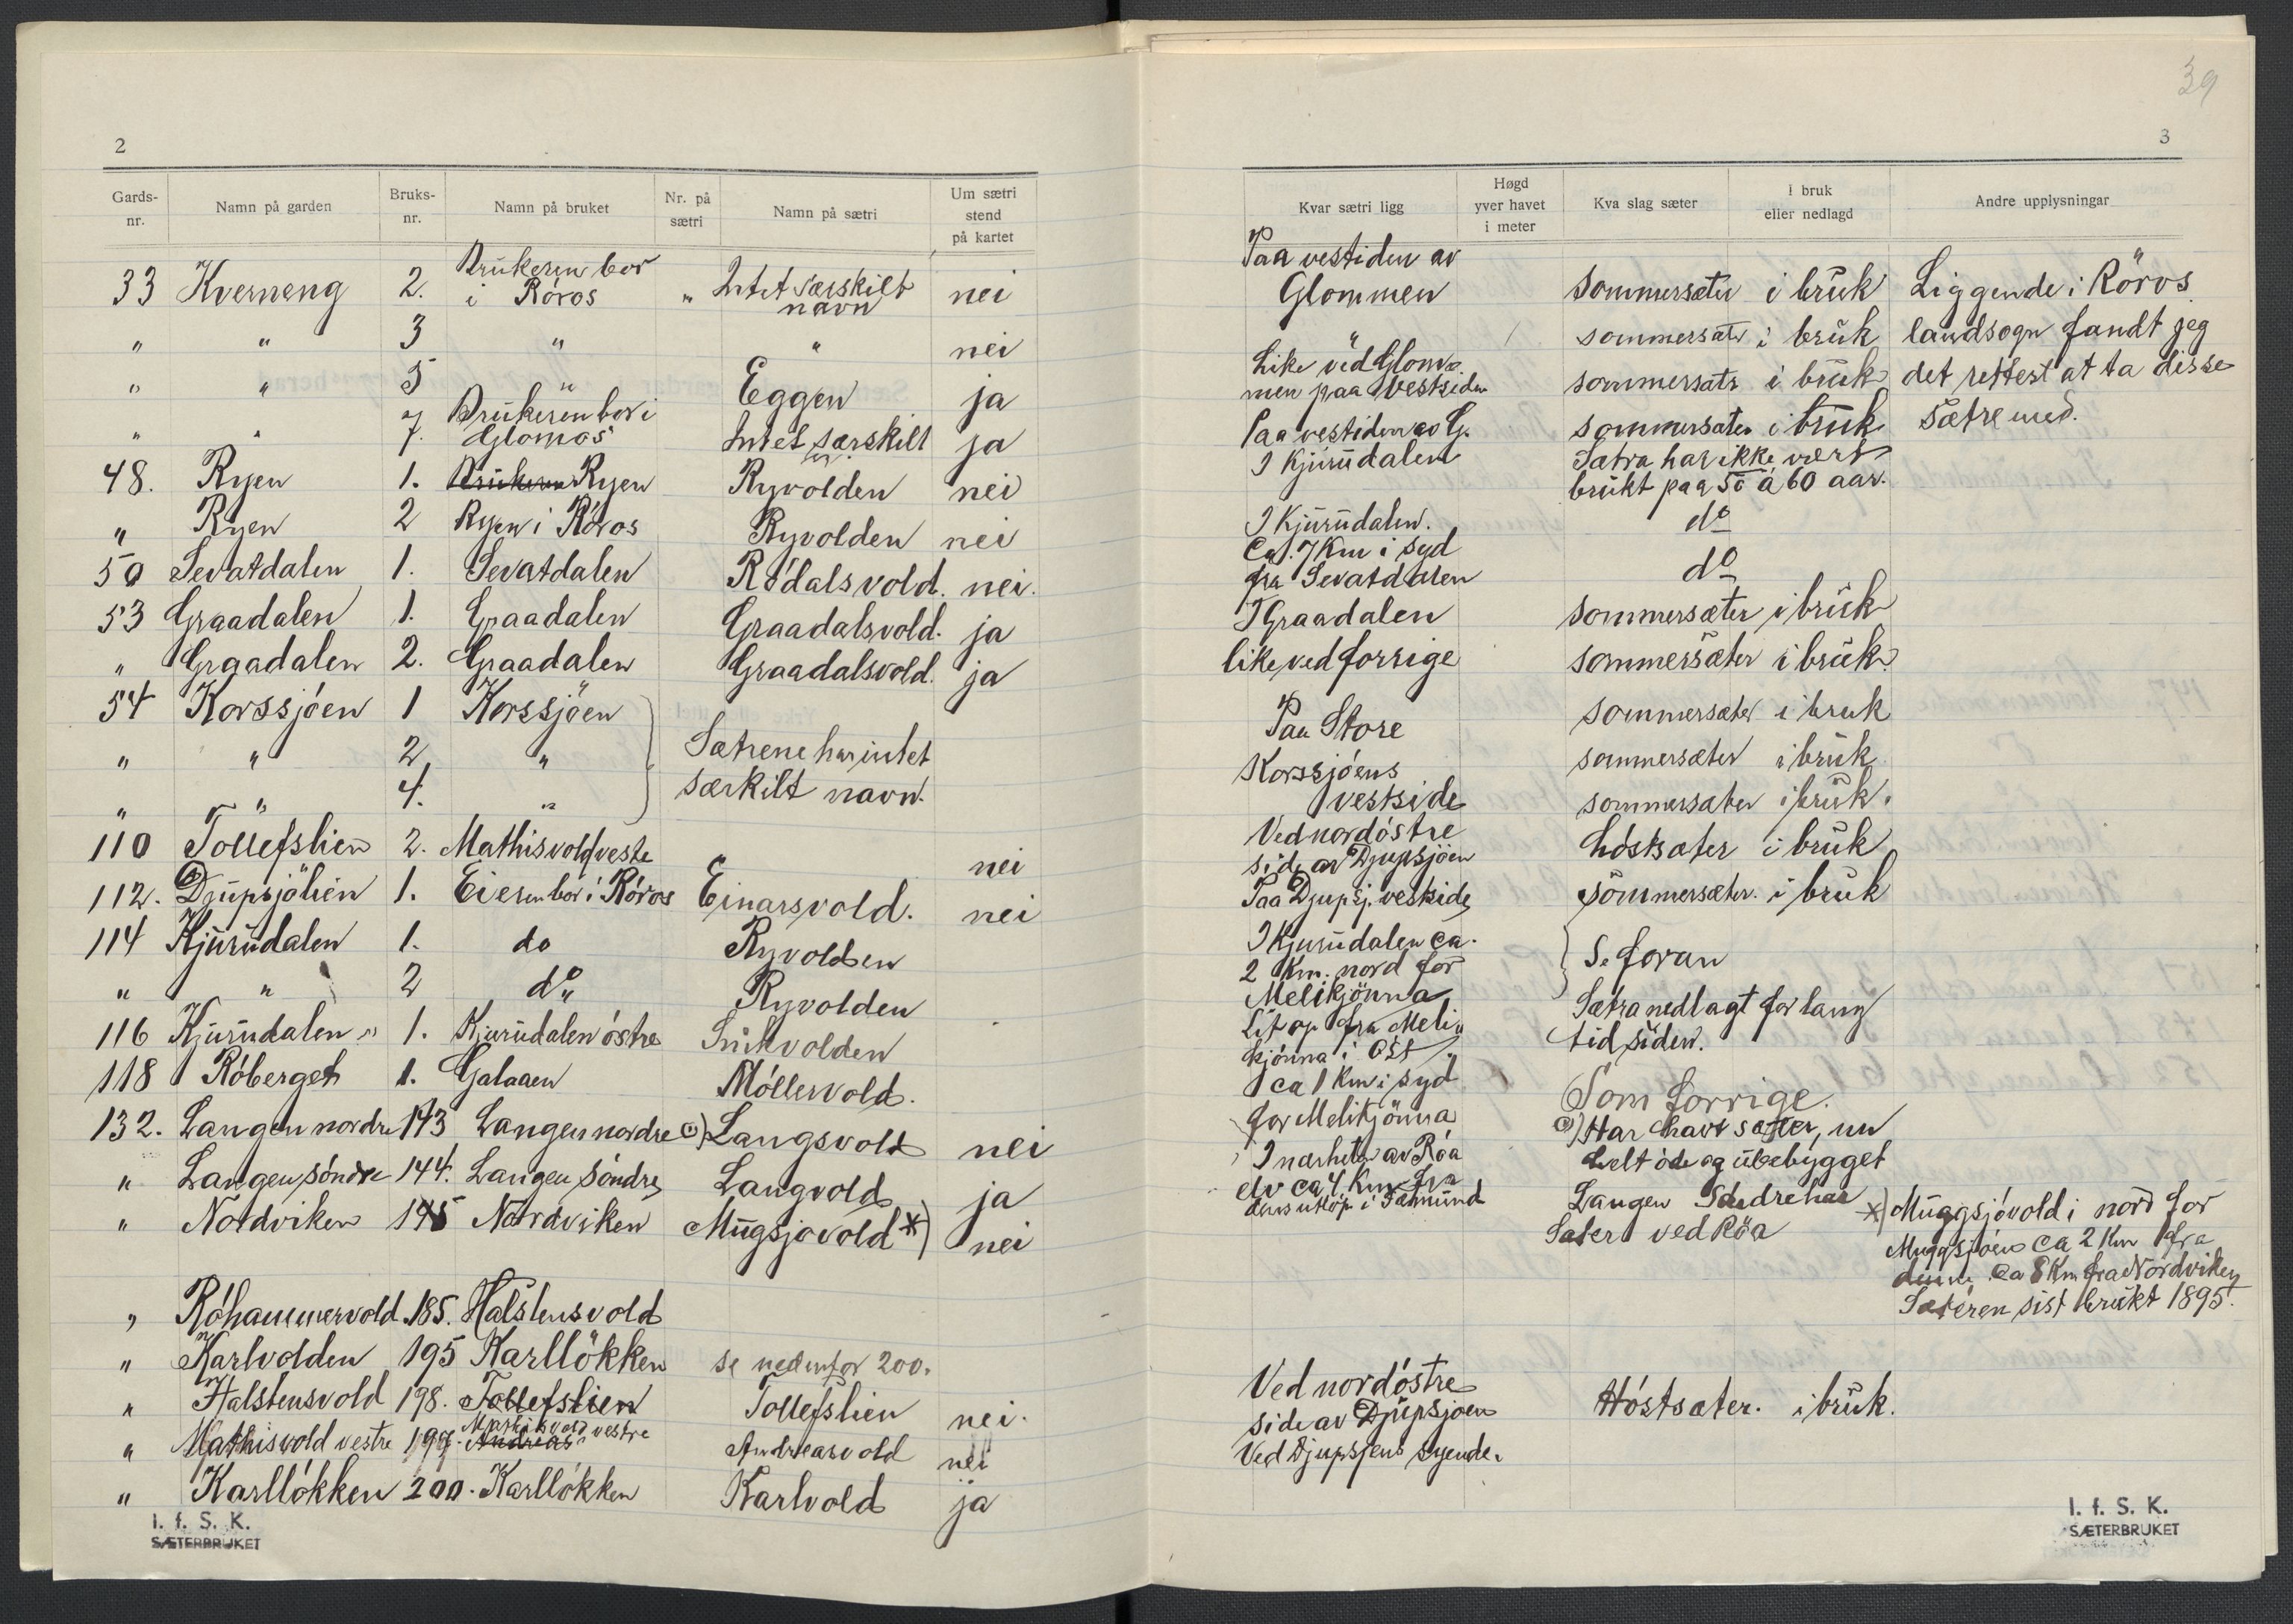 2
Gards-nr. Namn på garden Bruks-nr. Namn på bruket Nr. på sætri Namn på sætri Um sætri stend på kartet
33 Kverneng 2. Brukeren bor i Röros " Intet særskilt navn nei
" " 3 " " nei
" " 5 " Eggen ja
" " 7. Brukeren bor i Glomos Intet særskilt ja
48. Ryen 1. Brukeren Ryen Ryvolden nei
" Ryen 2 Ryen i Röros Ryvolden nei
50 Sevatdalen 1. Sevatdalen Rödalsvold. nei.
53 Graadalen 1. Graadalen Graadalsvold. ja
" Graadalen 2. Graadalen Graadalsvold. ja
54 Korssjöen 1 Korssjöen
" " 2 " Sætrene har intet
" " 4. " særkilt navn.
110 Tollefslien 2. Mathisvold veste " nei
112. Djupsjölien 1. Eieren bor i Röros Einarsvold. nei
114 Kjurudalen 1. do Ryvolden
" " 2 do " Ryvolden
116 Kjurudalen " 1. Kjurudalen östre Sukvolden
118 Röberget 1. Galaaen Möllervold.
132. Langen nordre 143 Langen nordre ⊙) Langsvold nei
" Langen söndre 144. Langen söndre Langvold ja
" Nordviken 145 Nordviken Mugsjovold *) nei
" Röhammervold 185. Halstensvold
" Karlvolden 195 Karllökken se nedenfor 200.
" Halstensvold 198. Tollefslien Tollefslien nei.
" Mathisvold vestre 199. Andreas Mathisvold vestre Andreasvold nei
" Karllökken 200. Karllökken Karlvold ja
I. f. S. K.
SÆTERBRUKET
39
3
Kvar sætri ligg Høgd yver havet i meter Kva slag sæter I bruk eller nedlagd Andre upplysningar
Paa vestiden av
Glommen sommersæter i bruk Liggende i Röros
" sommersæter i bruk landsogn fandt jeg
Like ved Glom-
men paa vestsiden sommersætr i bruk det rettest at ta disse
Paa vestiden av G. sommersæter i bruk sætre med.
I Kjurudalen Sætra har ikke vært
brukt paa 50 à 60 aar.
I Kjurudalen. do
Ca. 7 Km i syd
fra Sevatdalen do
I Graadalen sommersæter i bruk
like ved forrige sommersæter i bruk.
Paa Store sommersæter i bruk
Korssjöens sommersæter i bruk
vestside sommersæter i bruk.
Ved nordöstre
side av Djupsjöen höstsæter i bruk
Paa Djupsj. vestside sommersæter. i bruk
I Kjurudalen ca.
2 Km. nord for Se foran
Melikjönna
Lit op fra Meli- Sætra nedlagt for lang
kjönna i Öst tid siden.
ca 1 Km i syd
for Melikjönna Som forrige.
I nærheten av Röa ⊙) Har havt sæter, nu
elv ca 4 Km fra helt öde og ubebygget
dens utlöp i Fæmund Langen Söndre har
Sæter ved Röa
*) Muggsjövold i nord for
Muggsjöen ca 2 Km fra
denne. Ca 8 Km fra Nordviken
Sæteren sist brukt 1895.
Ved nordöstre
side av Djupsjoen Höstsæter. i bruk.
Ved Djupsjens syende.
I. f. S. K.
SÆTERBRUKET